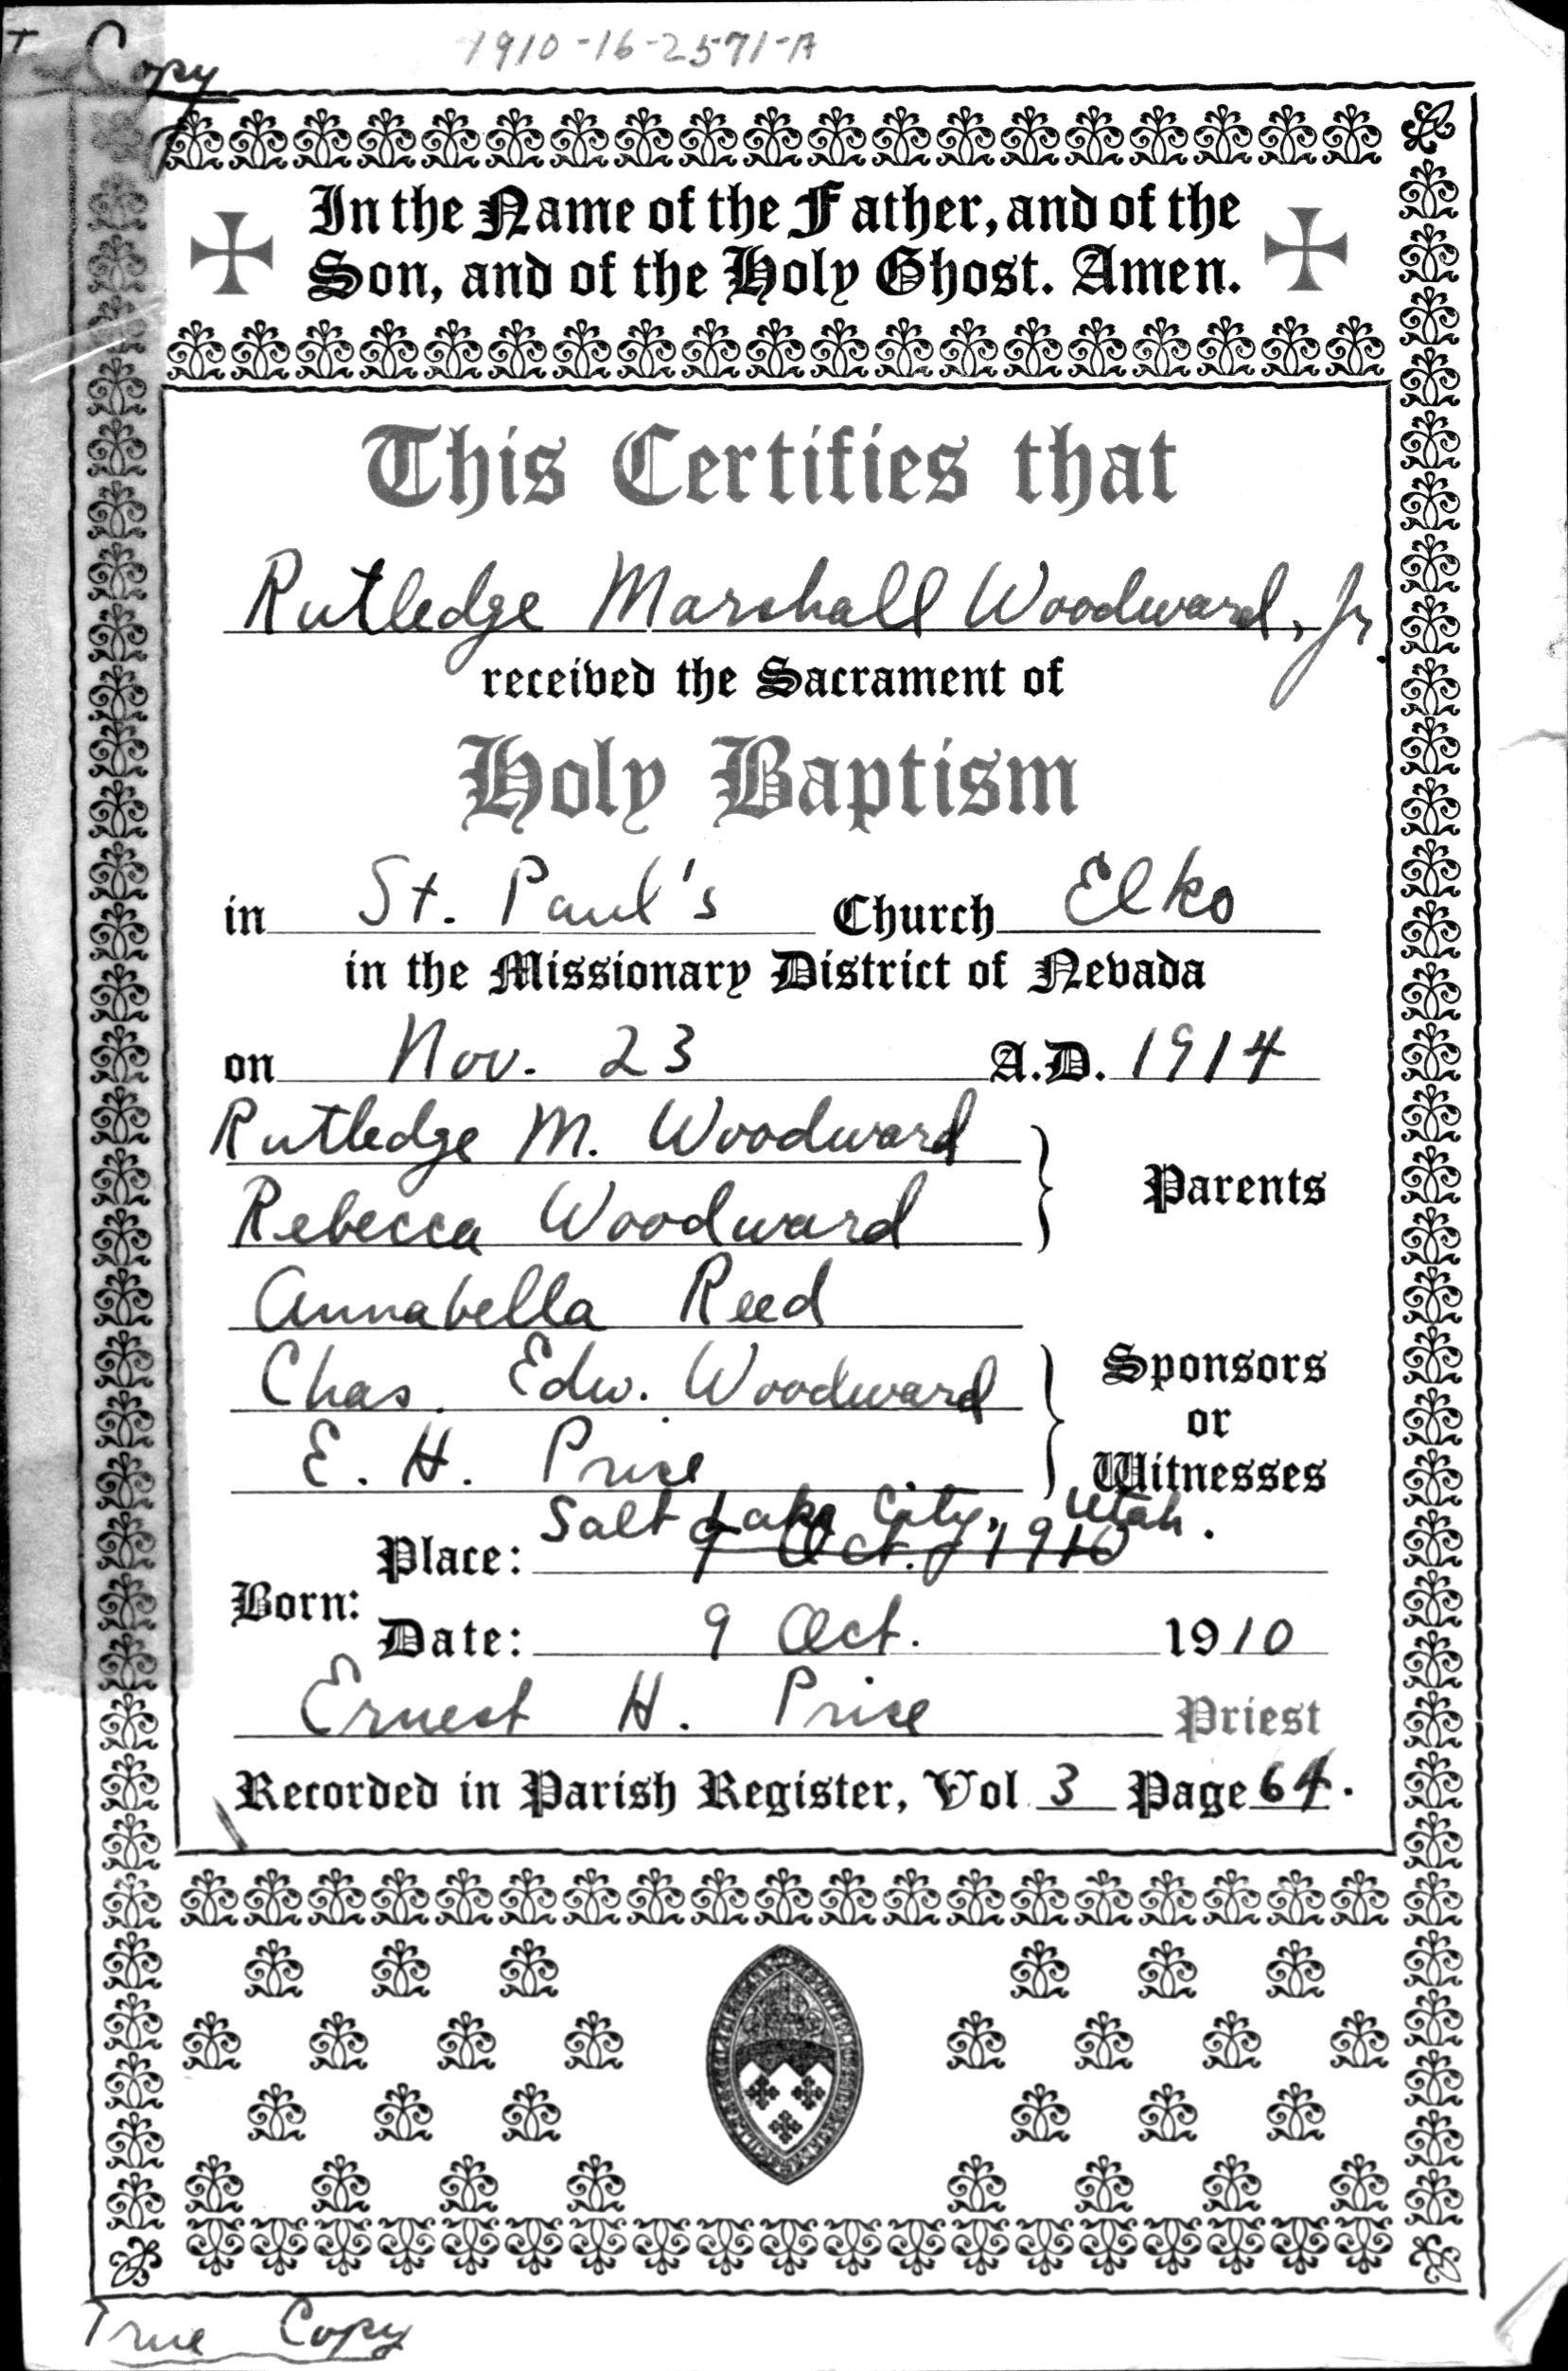 1910-16-2571-A
Copy
In the Name of the Father, and of the
Son, and of the Holy Ghost. Amen.
This Certifies that
Rutledge Marshall Woodward, Jr.
received the Sacrament of
Holy Baptism
in St. Paul's Church Elko
in the Missionary District of Nevada
on Nov. 23 A.D. 1914
Rutledge M. Woodward
Rebecca Woodward
Parents
Annabella Reed
Chas. Edw. Woodward
E. H. Price
Sponsors
or
Witnesses
Salt Lake City, Utah.
Place: 9 Oct. 1910
Born:
Date: 9 Oct. 1910
Ernest H. Price Priest
Recorded in Parish Register, Vol 3 Page 64.
True Copy